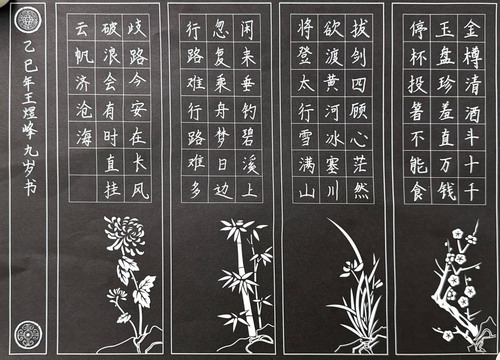 金樽清酒斗十千
玉盘珍羞直万钱
停杯投箸不能食
拔剑四顾心茫然
欲渡黄河冰塞川
将登太行雪满山
闲来垂钓碧溪上
忽复乘舟梦日边
行路难行路难多
歧路今安在长风
破浪会有时直挂
云帆济沧海
乙巳年王煜峰九岁书